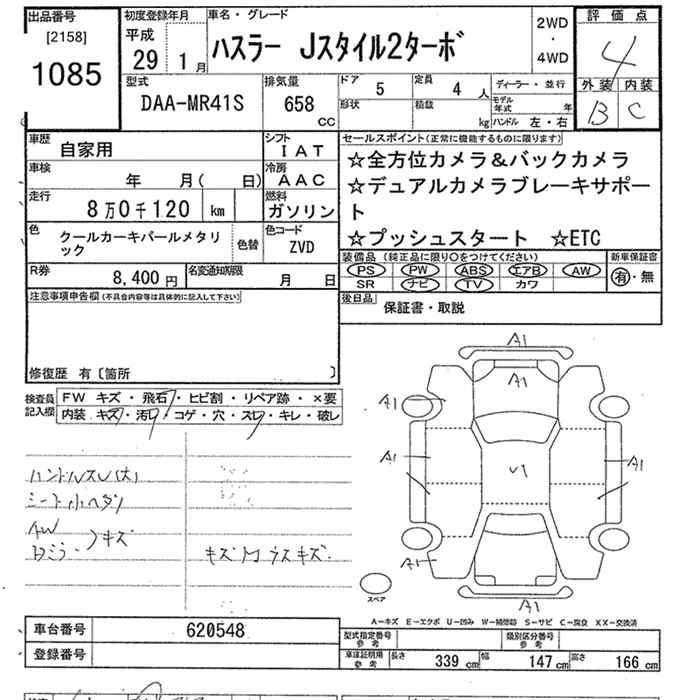 出品番号
[2158]
1085
初度登録年月
平成
29 1月
車名・グレード
ハスラー Jスタイル2ターボ
2WD
・
4WD
評価点
4
外装 内装
B C
型式
DAA-MR41S
排気量
658 CC
ドア 5
定員 4 人
ディーラー・並行
形状
積載 kg
モデル年式 年
ハンドル 左・右
車歴
自家用
シフト
IAT
車検
年 月( 日)
冷房
AAC
走行
8万0千120 km
燃料
ガソリン
色
クールカーキパールメタリ
ック
色替
色コード
ZVD
R券
8,400 円
名変通知期限
月 日
セールスポイント(正常に機能するものに限ります)
☆全方位カメラ&バックカメラ
☆デュアルカメラブレーキサポー
ト
☆プッシュスタート ☆ETC
装備品 (純正品に限り○をつけてください)
PS PW ABS エアB AW
SR ナビ TV カワ
新車保証書
有・無
後日品 保証書・取説
注意事項申告欄(不具合内容等は具体的に記入して下さい)
修復歴 有〔箇所
検査員
記入欄
FW キズ・飛石・ヒビ割・リペア跡・×要
内装 キズ・汚レ・コゲ・穴・スレ・キレ・破レ
ハンドルスレ(大)
シート小ヘタリ
AW
ドミラー
キズ
キズ
ウスキズ
A1
A1
A1
A1
A1
A1
A1
スペア
A-キズ E-エクボ U-凹み W-補修跡 S-サビ C-腐食 XX-交換済
車台番号 620548
登録番号
型式指定番号
参考
類別区分番号
参考
車庫証明用
参考
長さ 339 cm
幅 147 cm
高さ 166 cm